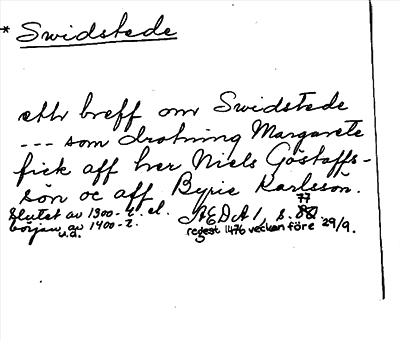 * Swidstede
ett breff om Swidstede
--- som drotning Margarete
fick aff her Niels Göstaffs-
sön oc aff Byrie Karlsson.
Slutet av 1300-t. el.
början av 1400-t.
u.d.
ÆDA I, s. 77
regest 1476 veckan före 29/9.